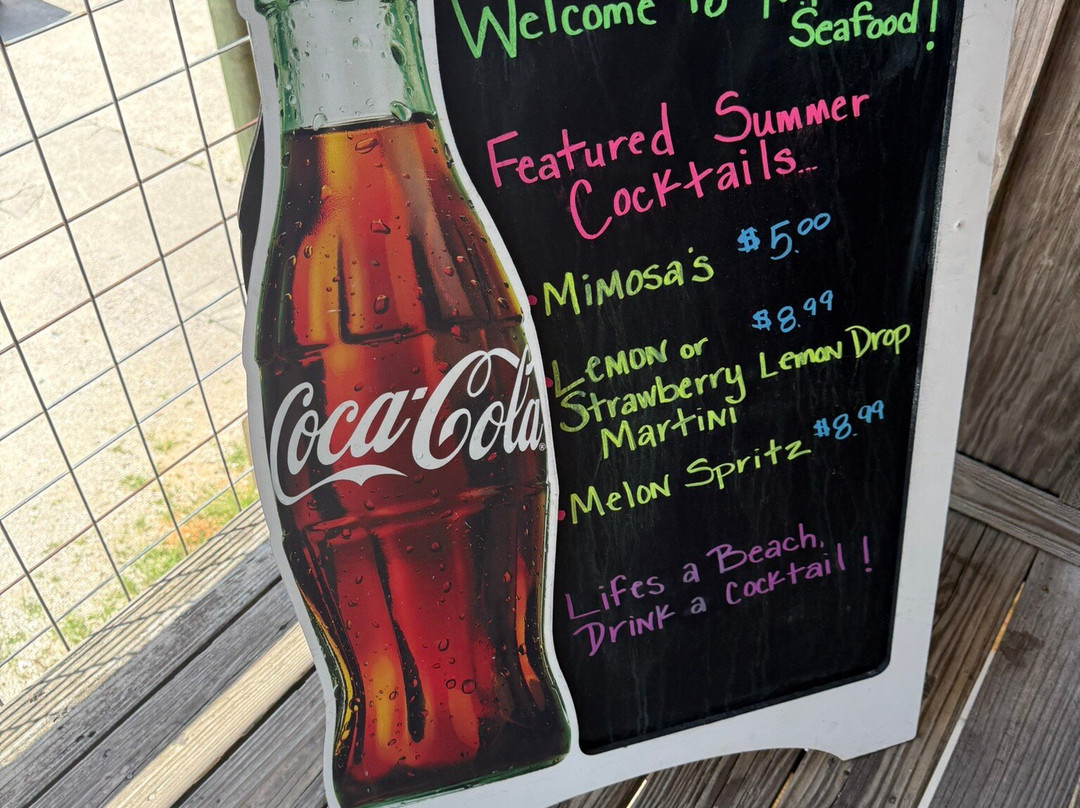 Welcome To
Seafood!
Featured Summer
Cocktails...
Mimosa's $5.00
$8.99
Lemon or
Strawberry Lemon Drop
Martini
Melon Spritz $8.99
Lifes a Beach,
Drink a Cocktail!
Coca-Cola®